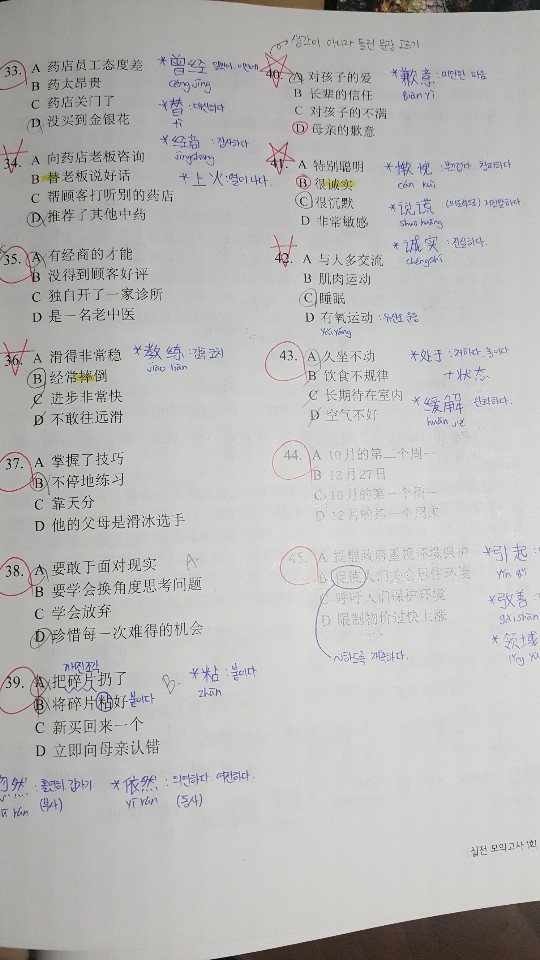 33. A 药店员工态度差
B 药太昂贵
C 药店关门了
D 没买到金银花
* 曾经
céng jīng
* 替 : 대신하다
tì
* 经商 : 장사하다
jīngshāng
34. A 向药店老板咨询
B 替老板说好话
C 帮顾客打听别的药店
D 推荐了其他中药
* 上火 : 열이 나다.
35. A 有经商的才能
B 没得到顾客好评
C 独自开了一家诊所
D 是一名老中医
36. A 滑得非常稳
B 经常摔倒
C 进步非常快
D 不敢往远滑
* 教练 : 감독, 코치
jiào liàn
37. A 掌握了技巧
B 不停地练习
C 靠天分
D 他的父母是滑冰选手
38. A 要敢于面对现实
B 要学会换角度思考问题
C 学会放弃
D 珍惜每一次难得的机会
A
39. A 把碎片扔了
깨진조각
B 将碎片粘好 붙이다
C 新买回来一个
D 立即向母亲认错
B.
* 粘 : 붙이다
zhān
忽然 : 돌연히, 갑자기
(부사)
* 依然 : 의연하다. 여전하다.
yī rán (동사)
생각이 아니라 들린 문장 고르기
40. A 对孩子的爱
B 长辈的信任
C 对孩子的不满
D 母亲的歉意
* 歉意 : 미안한 마음
41. A 特别聪明
B 很诚实
C 很沉默
D 非常敏感
* 惭愧 : 부끄럽다. 창피하다
cán kuì
* 说谎 : (의도적으로) 거짓말하다.
shuō huǎng
* 诚实 : 진실하다.
chéngshí
42. A 与人多交流
B 肌肉运动
C 睡眠
D 有氧运动 : 유산소 운동
43. A 久坐不动
B 饮食不规律
C 长期待在室内
D 空气不好
* 处于
+ 状态
* 缓解 : 완화하다.
huǎn jiě
44. A 10月的第二个周一
B 12月27日
C 10月的第一个周一
D 12月的第一个周末
45. A 提醒政府重视环境保护
B 促使人们关心居住环境
C 呼吁人们保护环境
D 限制物价过快上涨
~하도록 재촉하다.
* 引起 :
yǐn qǐ
* 改善
gǎishàn
* 领域
실전 모의고사 1회